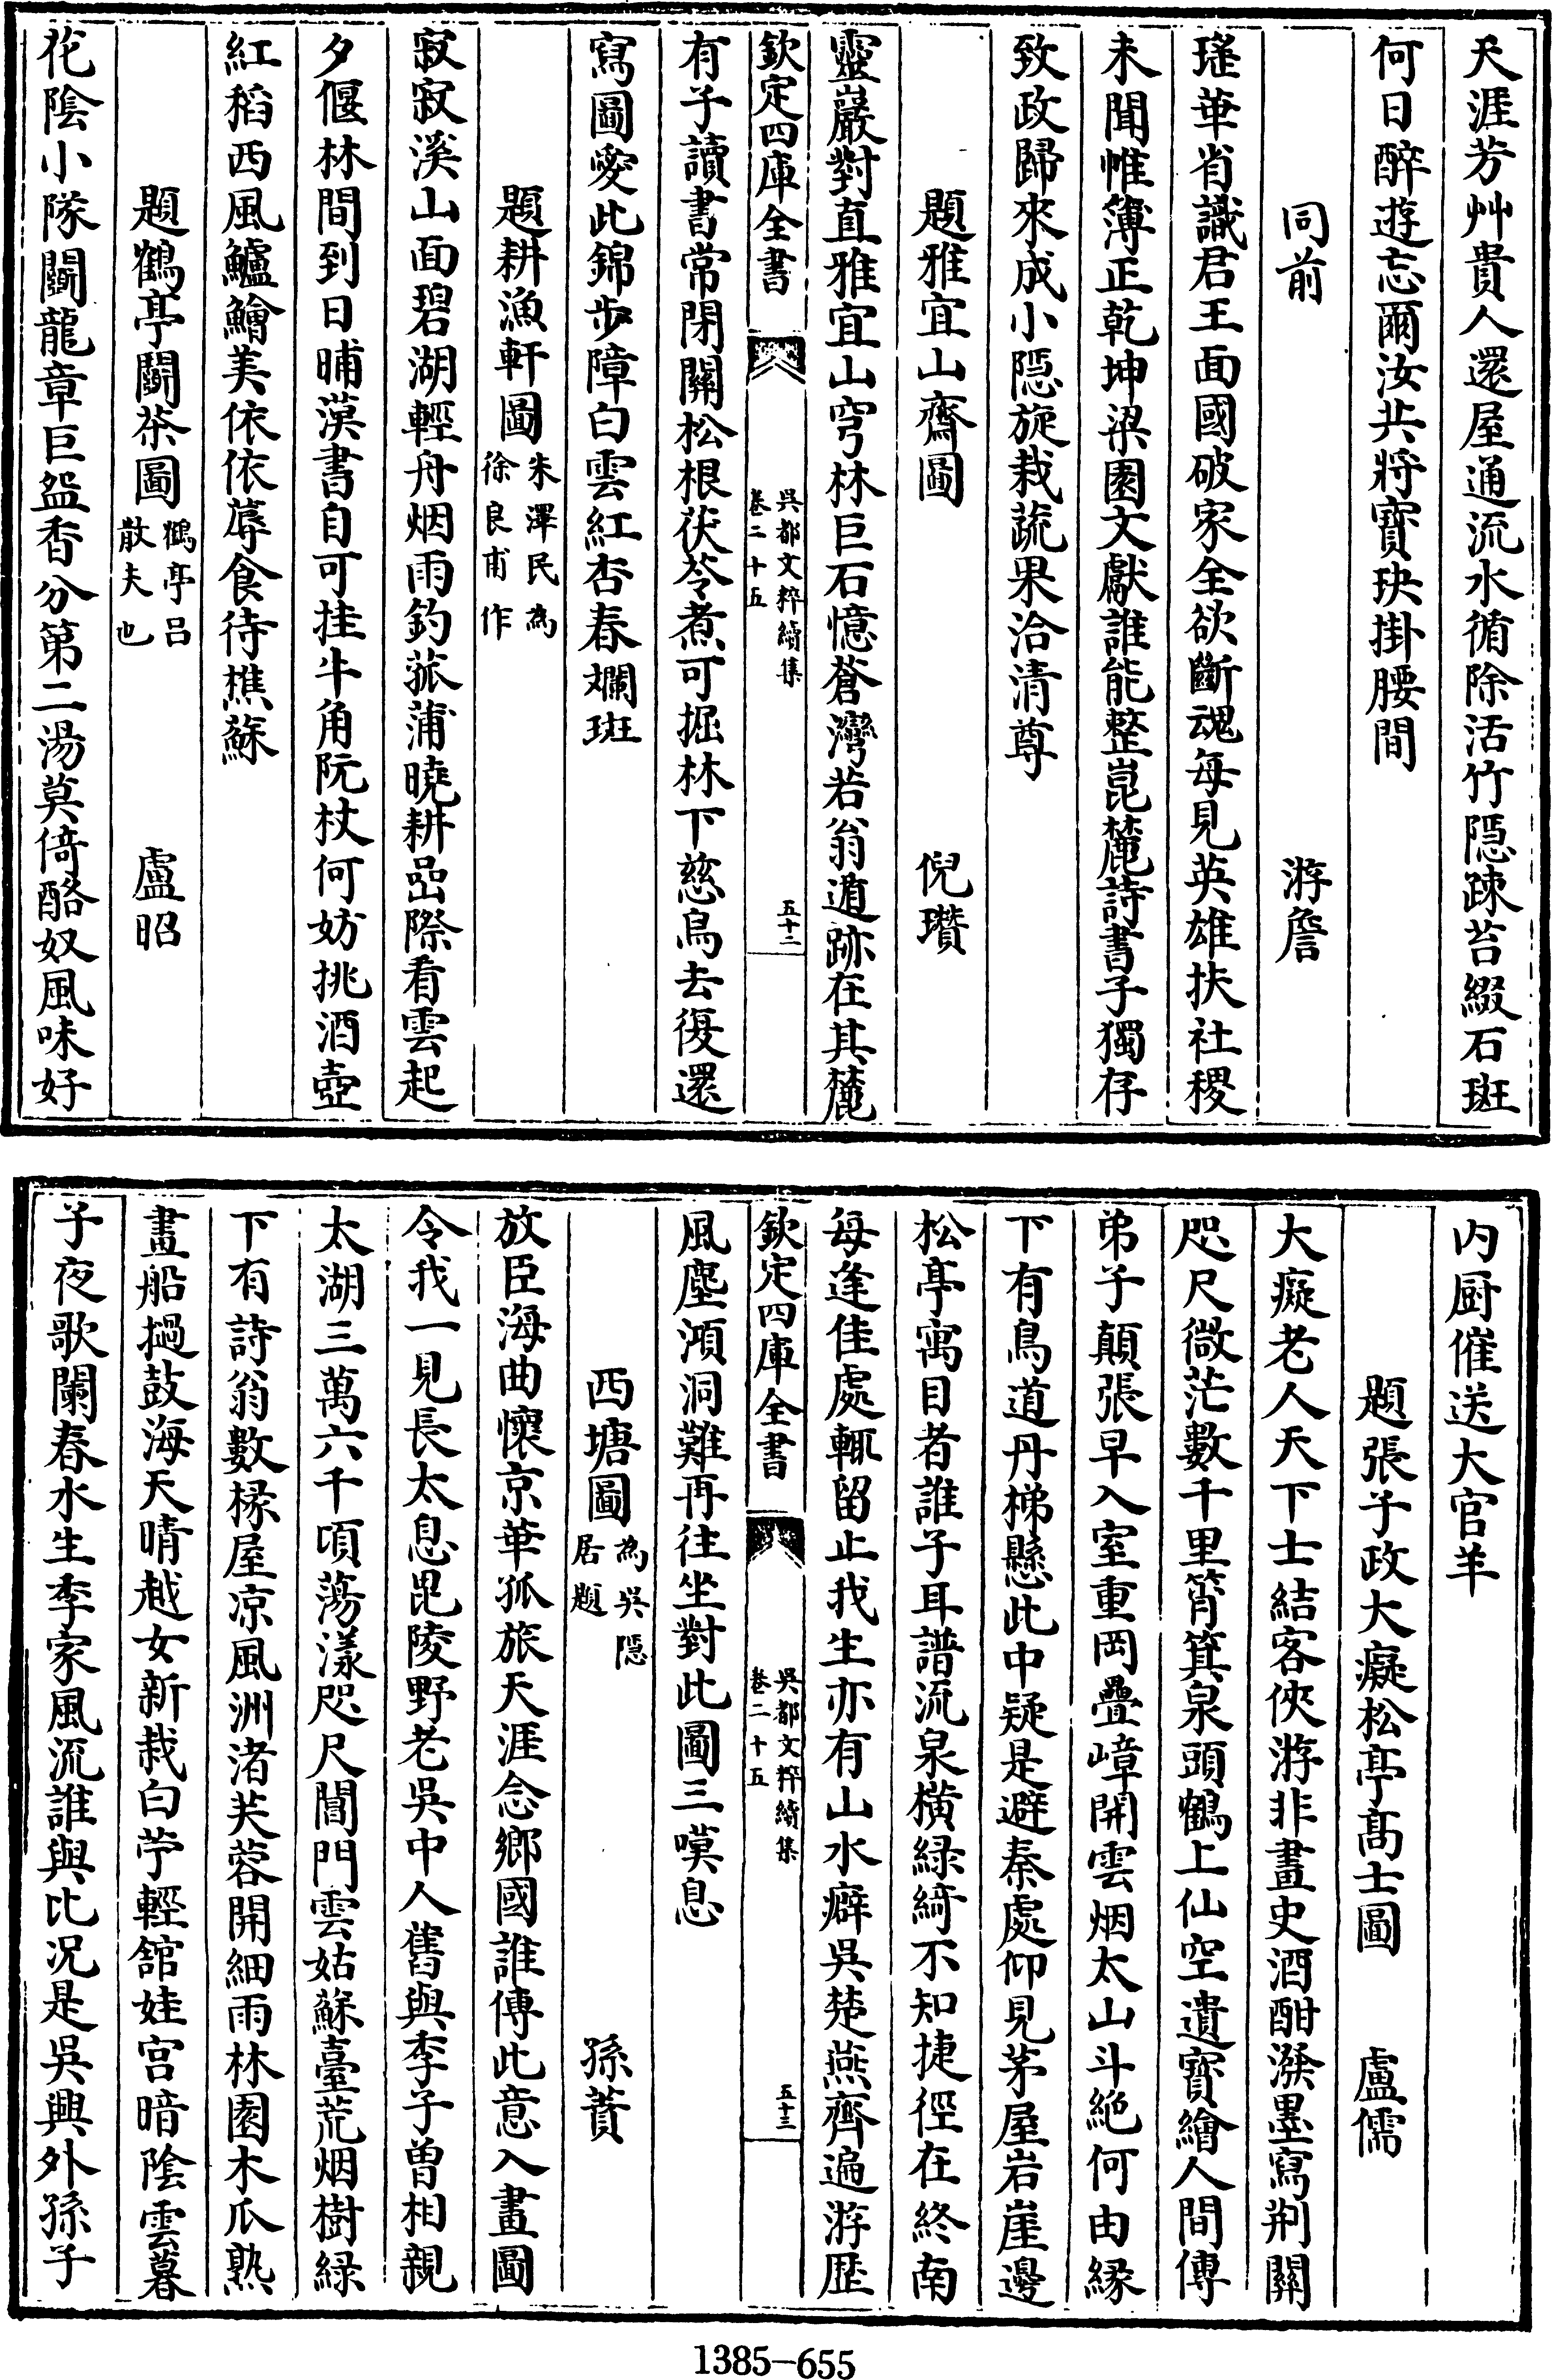 天涯芳艸貴人還屋通流水循除活竹隱疎苔綴石斑
何日醉遊忘爾汝共將寶玦掛腰間
同前　　　游詹
瑤華省識君王面國破家全欲斷魂每見英雄扶社稷
未聞帷簿正乾坤梁園文獻誰能整崑麓詩書子獨存
致政歸來成小隱旋栽蔬果洽清尊
題雅宜山齋圖　　　倪瓚
靈巖對直雅宜山穹林巨石憶蒼灣若翁遁跡在其麓
欽定四庫全書　吳都文粹續集　卷二十五　五十二
有子讀書常閉關松根茯苓煮可掘林下慈烏去復還
寫圖愛此錦步障白雲紅杏春斕斑
題耕漁軒圖　朱澤民為徐良甫作
寂寂溪山面碧湖輕舟烟雨釣菰蒲曉耕嵒際看雲起
夕偃林間到日晡漢書自可挂牛角阮杖何妨挑酒壺
紅稻西風鱸鱠美依依蓐食待樵蘇
題鶴亭鬬茶圖　鶴亭呂散夫也　　　盧昭
花陰小隊鬬龍章巨盌香分第二湯莫倚酪奴風味好
內厨催送大官羊
題張子政大癡松亭高士圖　　　盧儒
大癡老人天下士結客俠游非畫史酒酣潑墨寫荆關
咫尺微茫數千里筲箕泉頭鶴上仙空遺寶繪人間傳
弟子顛張早入室重岡疊嶂開雲烟太山斗絶何由緣
下有鳥道丹梯懸此中疑是避秦處仰見茅屋岩崖邊
松亭寓目者誰子耳譜流泉橫綠綺不知捷徑在終南
每逢佳處輒留止我生亦有山水癖吳楚燕齊遍游歴
欽定四庫全書　吳都文粹續集　卷二十五　五十三
風塵澒洞難再往坐對此圖三嘆息
西塘圖　為吳隱居題　　　孫蕡
放臣海曲懷京華孤旅天涯念鄉國誰傳此意入畫圖
令我一見長太息毘陵野老吳中人舊與李子曽相親
太湖三萬六千頃蕩漾咫尺閶門雲姑蘇臺荒烟樹綠
下有詩翁數椽屋凉風洲渚芙蓉開細雨林園木瓜熟
畫船撾鼓海天晴越女新栽白苧輕舘娃宫暗陰雲暮
子夜歌闌春水生李家風流誰與比况是吳興外孫子
1385-655